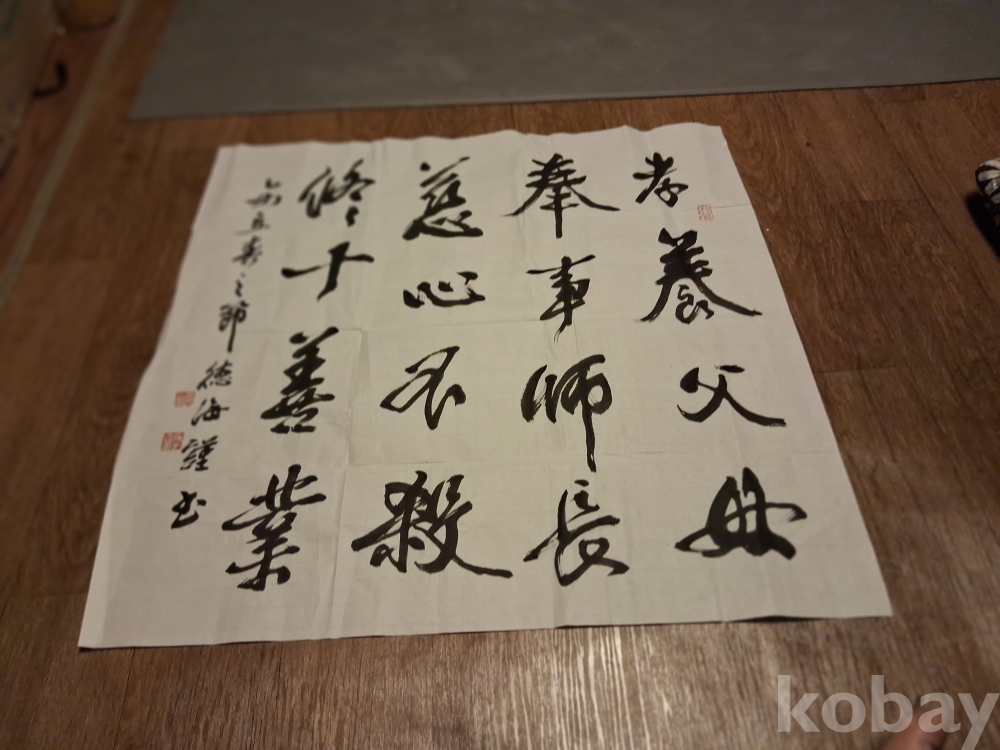 孝養父母
奉事師長
慈心不殺
修十善業
春之節 德海 謹書
kobay